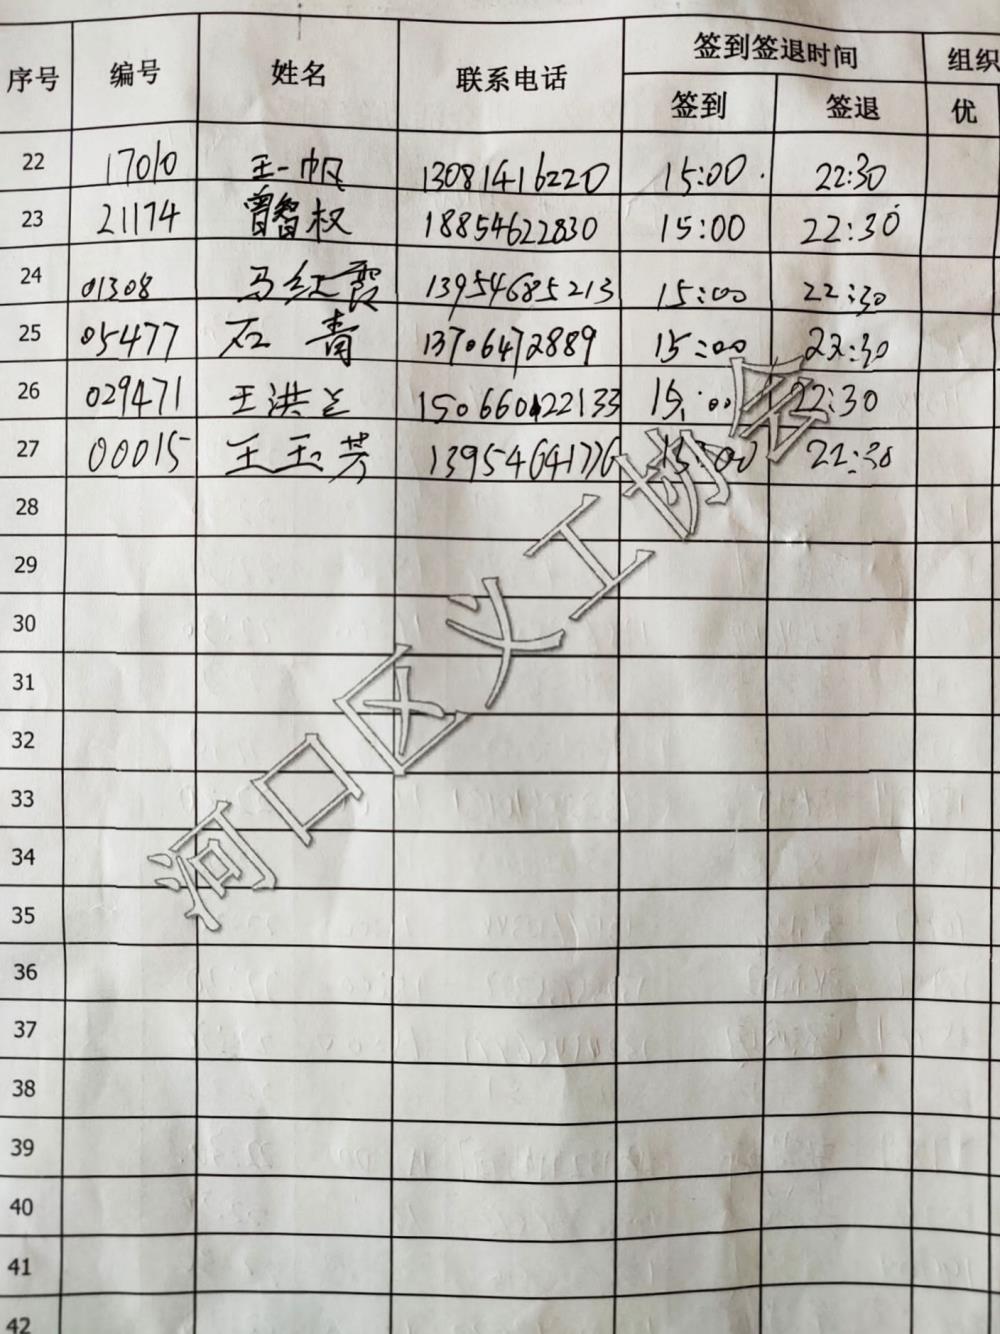 序号 编号 姓名 联系电话 签到签退时间 组织
签到 签退 优
22 17010 王一帆 13081416220 15:00 22:30
23 21174 曾智权 18854622830 15:00 22:30
24 01308 马红霞 13954685213 15:00 22:30
25 05477 石青 13706472889 15:00 22:30
26 029471 王洪兰 150660122133 15:00 22:30
27 00015 王玉芳 13954641776 15:00 22:30
28
29
30
31
32
33
34
35
36
37
38
39
40
41
42
河口区义工协会